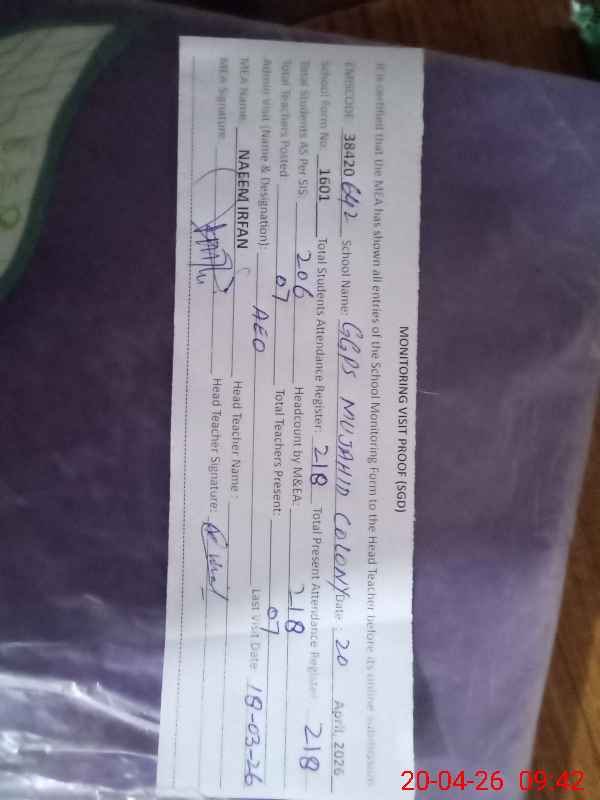 MONITORING VISIT PROOF (SGD)
It is certified that the MEA has shown all entries of the School Monitoring Form to the Head Teacher before its online submission
EMISCODE: 38420642 School Name: GGPS MUJAHID COLONY Date: 20 April, 2026
School Form No: 1601 Total Students Attendance Register: 218 Total Present Attendance Register: 218
Total Students AS Per SIS: 206 Headcount by M&EA: 218
Total Teachers Posted: 07 Total Teachers Present: 07
Admin Visit (Name & Designation): AEO Last Visit Date: 18-03-26
MEA Name: NAEEM IRFAN Head Teacher Name :
MEA Signature: Head Teacher Signature:
20-04-26 09:42